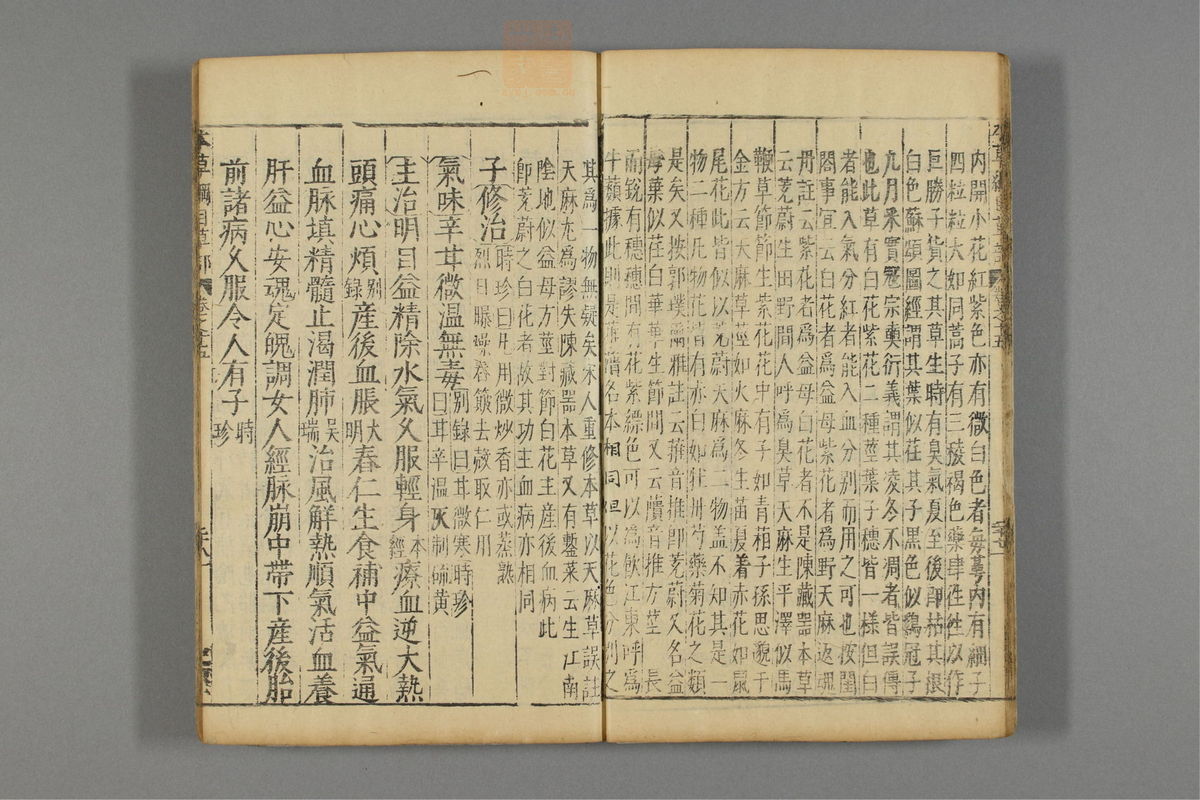 內開小花紅紫色亦有微白色者每萼內有細子
四粒粒大如同蒿子有三稜褐色藥肆往往以作
巨勝子貨之其草生時有臭氣夏至後卽枯其根
白色蘇頌圖經謂其葉似荏其子黑色似鷄冠子
九月采實寇宗奭衍義謂其凌冬不凋者皆誤傳
也此草有白花紫花二種莖葉子穗皆一樣但白
者能入氣分紅者能入血分別而用之可也按閨
閤事宜云白花者爲益母紫花者爲野天麻返魂
丹註云紫花者爲益母白花者不是陳藏器本草
云茺蔚生田野間人呼爲臭草天麻生平澤似馬
鞭草節節生紫花花中有子如青葙子孫思邈千
金方云天麻草莖如火麻冬生苗夏着赤花如鼠
尾花此皆似以茺蔚天麻爲二物蓋不知其是一
物二種凡物花皆有赤白如牡丹芍藥菊花之類
是矣又按郭璞爾雅註云蓷音推卽茺蔚又名益
母葉似荏白華華生節間又云藬音推方莖葉長
而銳有穗穗間有花紫縹色可以爲飲江東呼爲
牛蘈據此則是蓷藬名本相同但以花色分別之
其爲一物無疑矣宋人重修本草以天麻草誤註
天麻尤爲謬失陳藏器本草又有鏨菜云生江南
陰地似益母方莖對節白花主產後血病此
卽茺蔚之白花者故其功主血病亦相同
子修治時珍曰凡用微炒香亦或蒸熟
烈日曝燥舂簸去殼取仁用
氣味辛甘微溫無毒別錄曰甘微寒時珍
曰甘辛溫灰制硫黃
主治明目益精除水氣久服輕身本經療血逆大熱
頭痛心煩別錄產後血脹大明舂仁生食補中益氣通
血脉填精髓止渴潤肺吳瑞治風解熱順氣活血養
肝益心安魂定魄調女人經脉崩中帶下產後胎
前諸病久服令人有子時珍
本草綱目草部
卷之十五